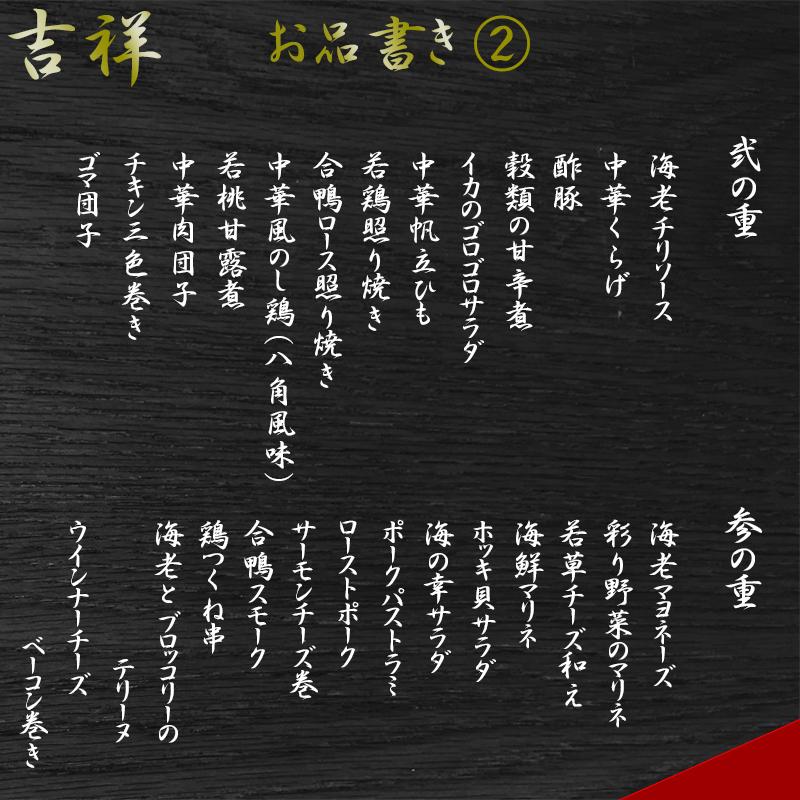 吉祥
お品書き②
弐の重
海老チリソース
中華くらげ
酢豚
穀類の甘辛煮
イカのゴロゴロサラダ
中華帆立ひも
若鶏照り焼き
合鴨ロース照り焼き
中華風のし鶏(八角風味)
若桃甘露煮
中華肉団子
チキン三色巻き
ゴマ団子
参の重
海老マヨネーズ
彩り野菜のマリネ
若草チーズ和え
海鮮マリネ
ホッキ貝サラダ
海の幸サラダ
ポークパストラミ
ローストポーク
サーモンチーズ巻
合鴨スモーク
鶏つくね串
海老とブロッコリーの
テリーヌ
ウインナーチーズ
ベーコン巻き